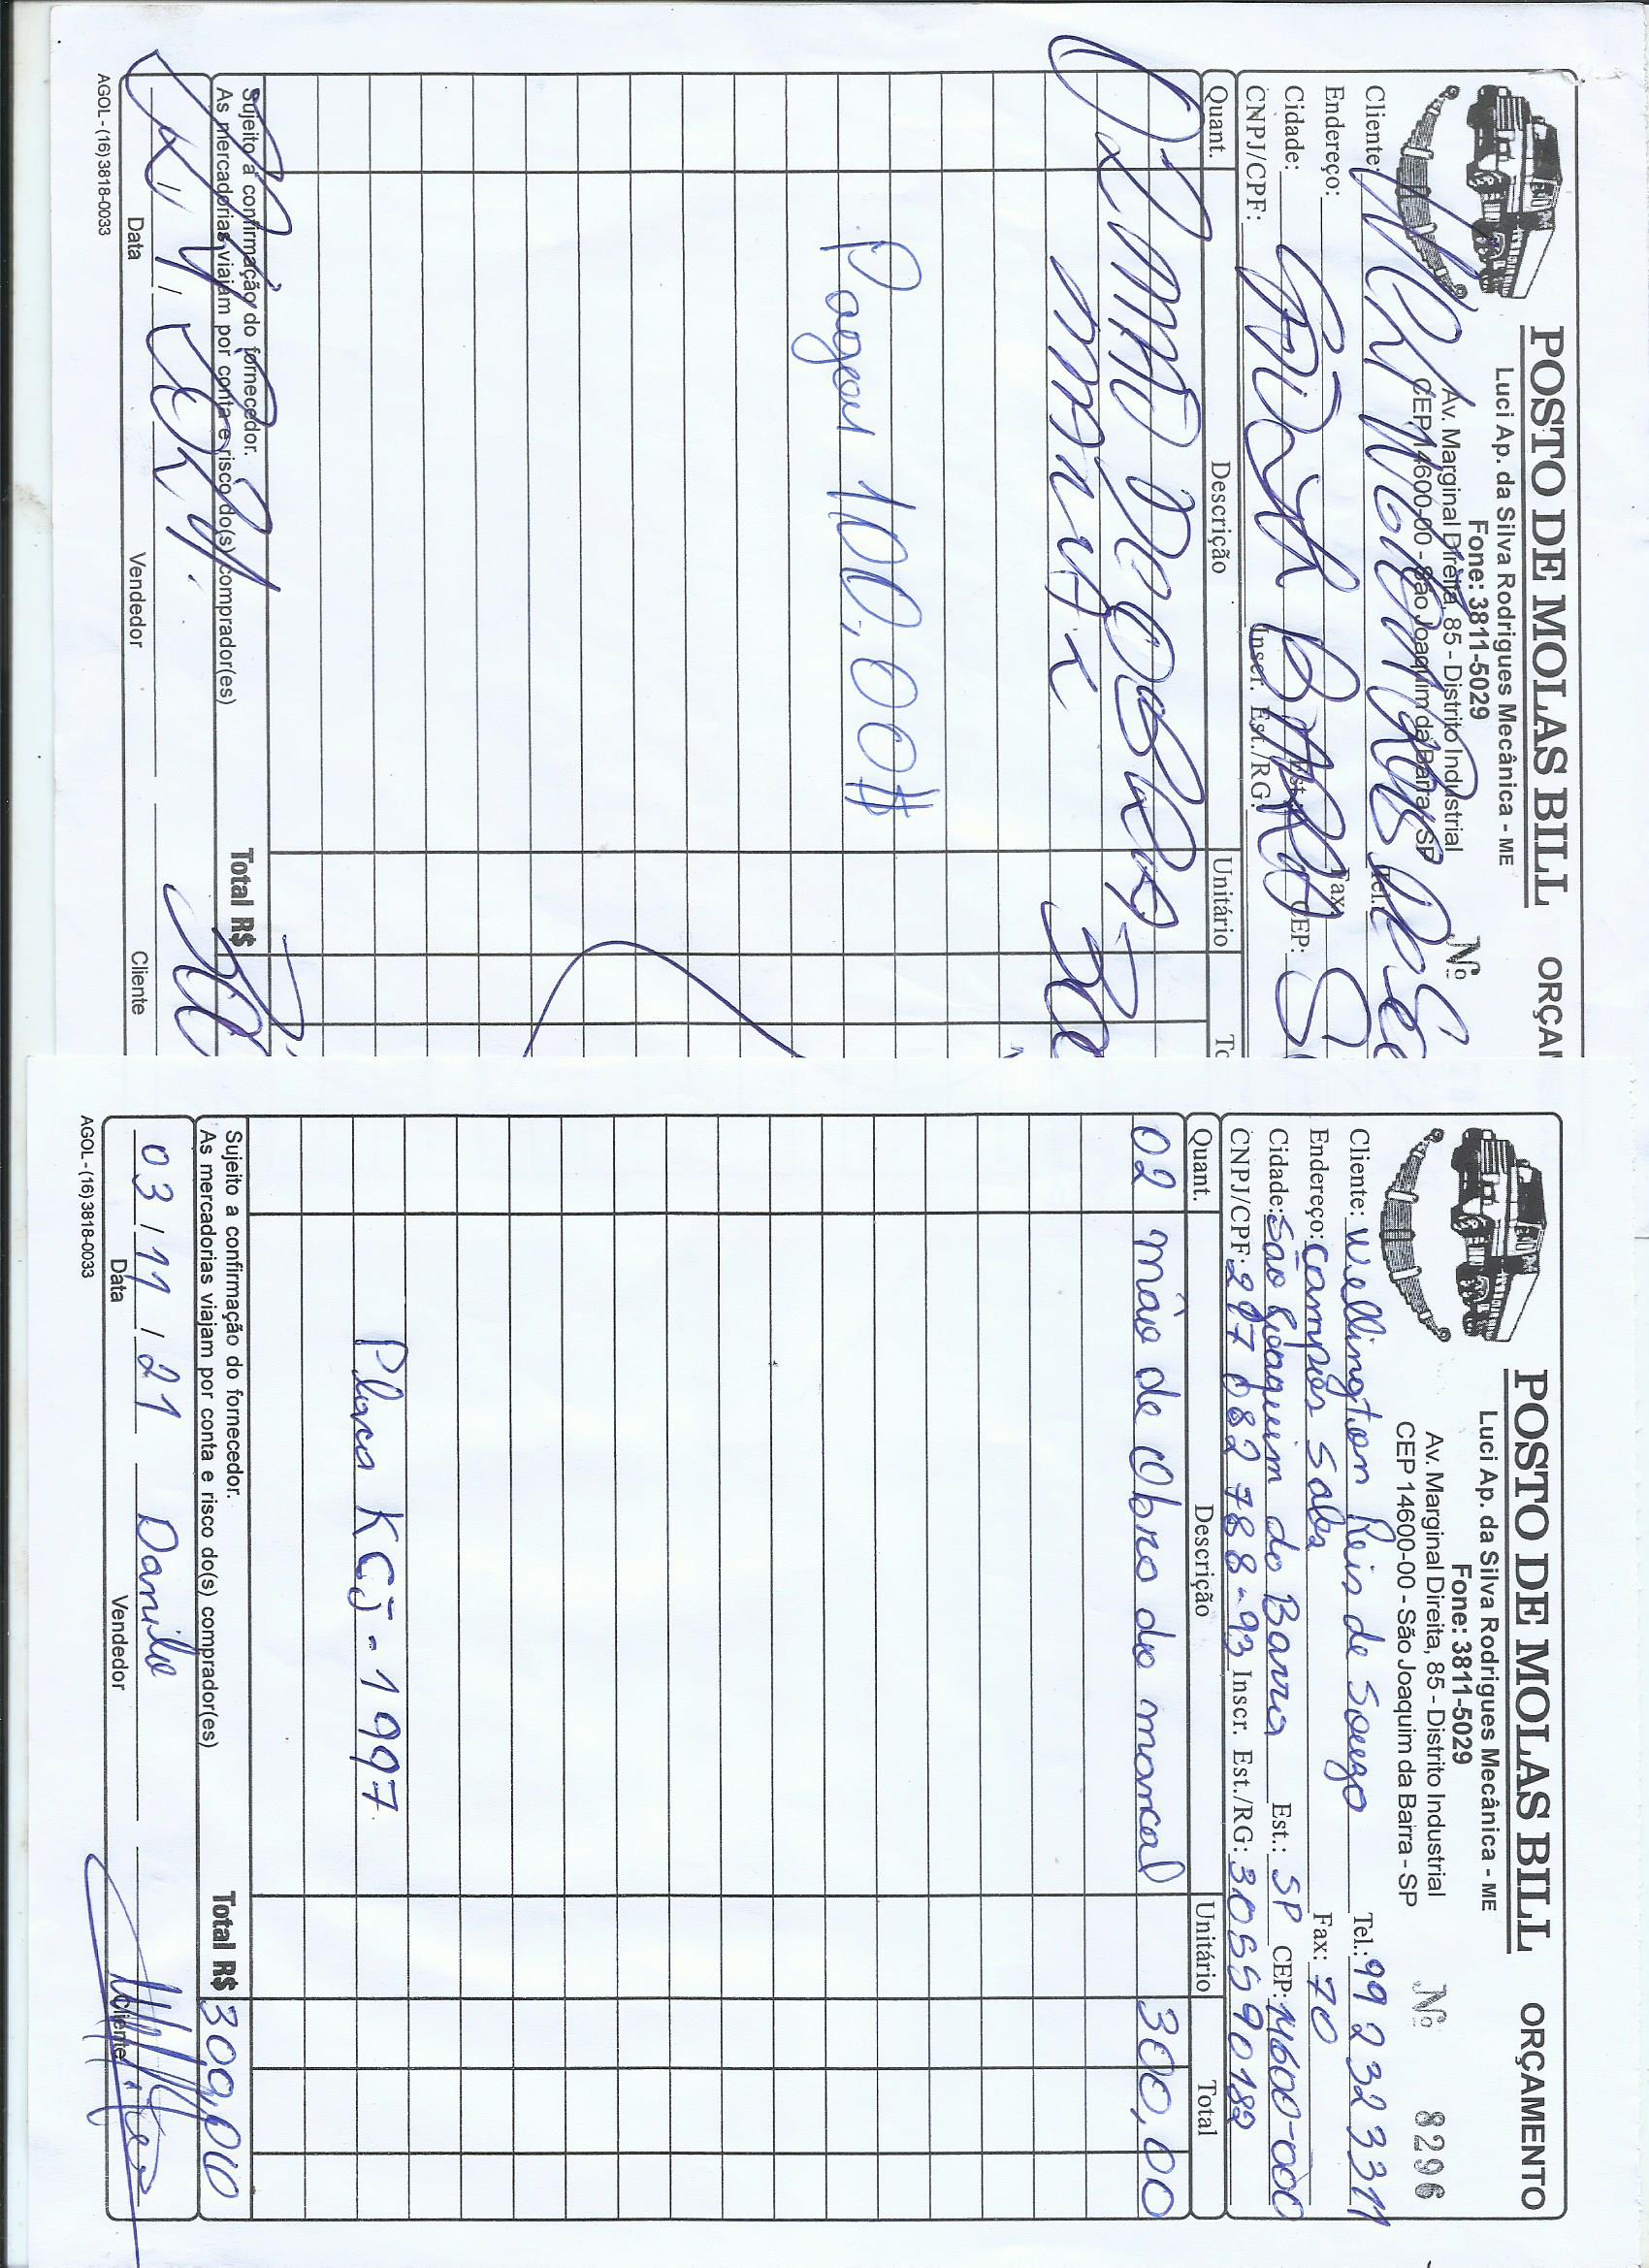 POSTO DE MOLAS BILL ORÇAM
Luci Ap. da Silva Rodrigues Mecânica - ME
Fone: 3811-5029
Av. Marginal Direita, 85 - Distrito Industrial
CEP 14600-00 - São Joaquim da Barra - SP
Nº
Cliente: Tel.:
Endereço: Fax:
Cidade: Est.: CEP:
CNPJ/CPF: Inscr. Est./RG:
Quant. Descrição Unitário To
Pagou 100,00$
Total R$
Sujeito a confirmação do fornecedor.
As mercadorias viajam por conta e risco do(s) comprador(es)
Data Vendedor Cliente
AGOL - (16) 3818-0033
POSTO DE MOLAS BILL ORÇAMENTO
Luci Ap. da Silva Rodrigues Mecânica - ME
Fone: 3811-5029
Av. Marginal Direita, 85 - Distrito Industrial
CEP 14600-00 - São Joaquim da Barra - SP
Nº 8296
Cliente: Wellington Reis de Souza Tel.: 99 232 3311
Endereço: Campos Sales Fax: 70
Cidade: São Joaquim da Barra Est.: SP CEP: 14600-000
CNPJ/CPF: 297 082 788-93 Inscr. Est./RG: 305590182
Quant. Descrição Unitário Total
02 mão de Obra do mancal 300,00
Placa KCJ - 1997
Total R$ 300,00
Sujeito a confirmação do fornecedor.
As mercadorias viajam por conta e risco do(s) comprador(es)
03 / 11 / 21 Danilo
Data Vendedor Cliente
AGOL - (16) 3818-0033